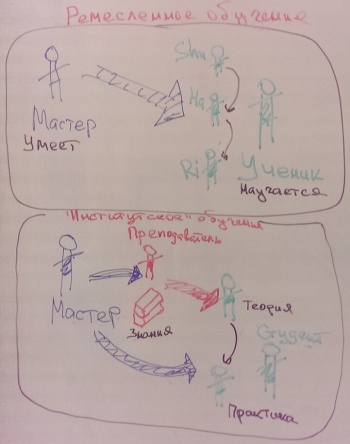 Ремесленное обучение
Shu
Ha
Мастер
Умеет
Ri
Ученик
Научается
"Институтское" обучение
Преподаватель
Мастер
Знания
Теория
Студент
Практика